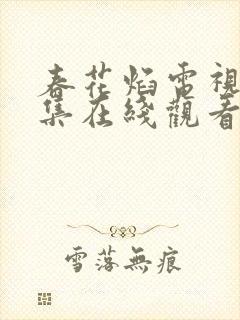 春花焰電視
集在綫觀看
雪落無痕